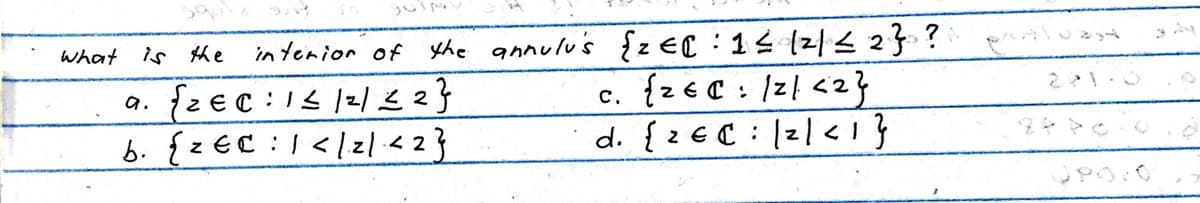 What is the interior of the annulus {z ∈ ℂ : 1 ≤ |z| ≤ 2} ?
a. {z ∈ ℂ : 1 ≤ |z| ≤ 2}
c. {z ∈ ℂ : |z| < 2}
b. {z ∈ ℂ : 1 < |z| < 2}
d. {z ∈ ℂ : |z| < 1}